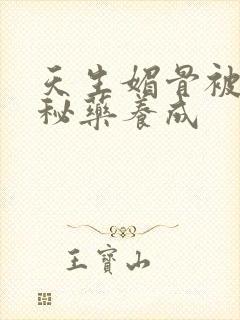 天生媚骨被
秘藥養成
王寶山